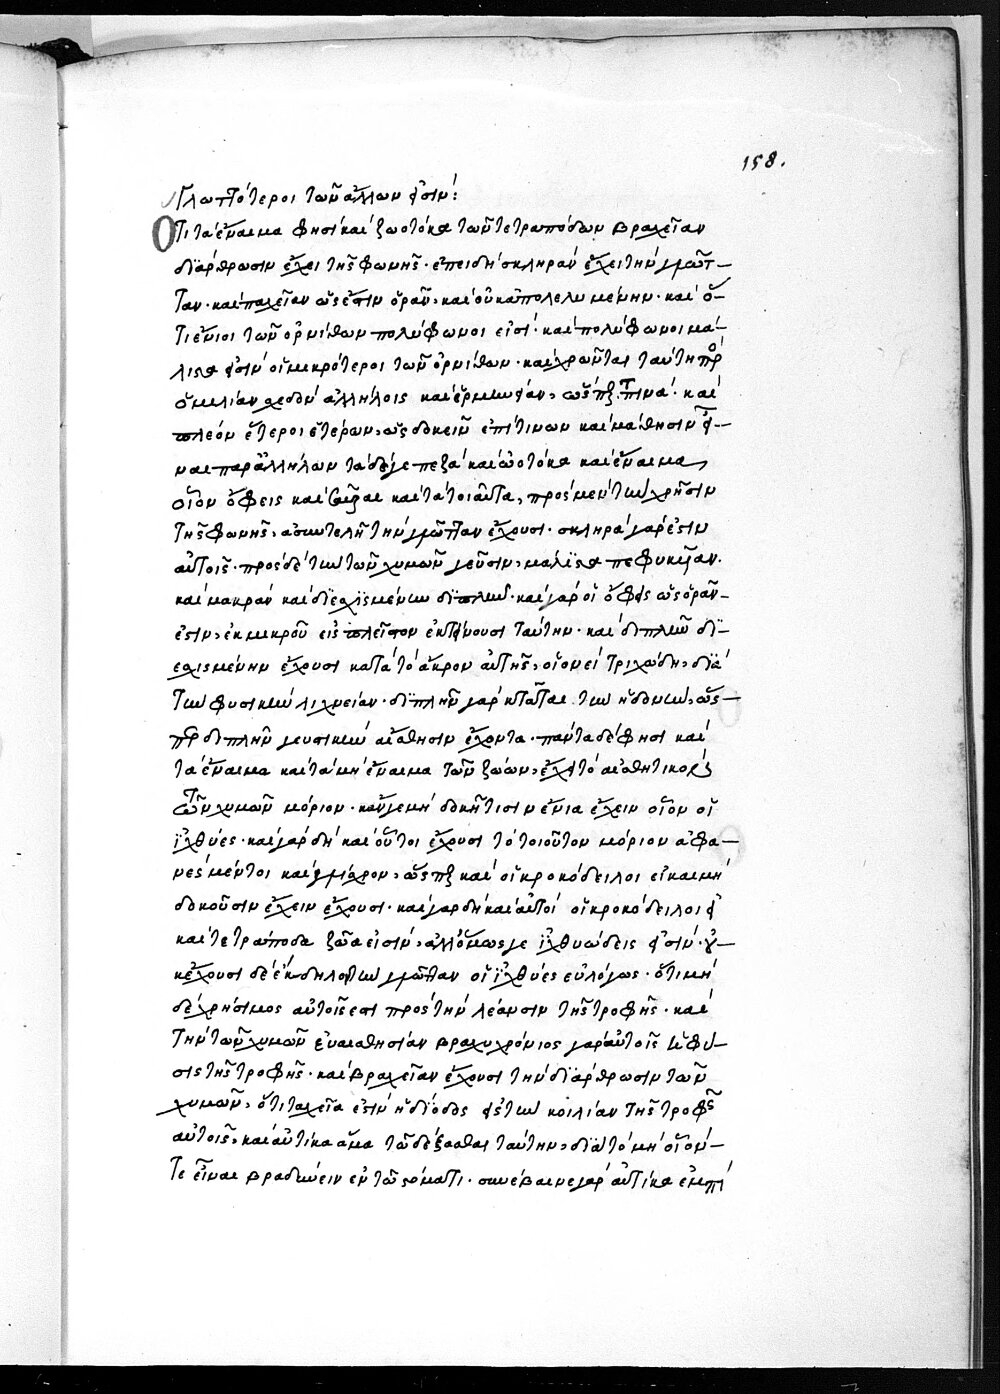 158.
γλωττότεροι τῶν ἄλλων εἰσίν:
Ὅτι τὰ ἔναιμα φησὶ καὶ ζωοτόκα τῶν τετραπόδων βραχεῖαν
διάρθρωσιν ἔχει τῆς φωνῆς· ἐπειδὴ σκληρὰν ἔχει τὴν γλῶτ-
ταν· καὶ παχεῖαν ὡς ἔστιν ὁρᾶν· καὶ οὐκ ἀπολελυμένην· καὶ ὅ-
τι ἔνιοι τῶν ὀρνίθων πολύφωνοι εἰσί· καὶ πολύφωνοι μά-
λιστα εἰσὶν οἱ μικρότεροι τῶν ὀρνίθων· καὶ χρῶνται ταύτῃ πρὸς
ὁμιλίαν σχεδὸν ἀλλήλοις καὶ ἑρμηνείαν, ὥσπερ τινά· καὶ
πλέον ἕτεροι ἑτέρων, ὡς δοκεῖν ἐπί τινων καὶ μάθησιν εἶ-
ναι παρ' ἀλλήλων τὰ δέ γε πεζὰ καὶ ὠοτόκα καὶ ἔναιμα,
οἷον ὄφεις καὶ σαῦραι καὶ τὰ τοιαῦτα, πρὸς μὲν τὴν χρῆσιν
τῆς φωνῆς, ἀσυντελῆ τὴν γλῶτταν ἔχουσι· σκληρὰ γάρ ἐστιν
αὐτοῖς· πρὸς δὲ τὴν τῶν χυμῶν γεῦσιν, μάλιστα πεφυκυῖαν·
καὶ μακρὰν καὶ διεσχισμένην διπλῆν· καὶ γὰρ οἱ ὄφεις ὡς ὁρᾶν
ἔστιν, ἐκ μικροῦ εἰς πλεῖστον ἐκτείνουσι ταύτην· καὶ διπλῆν δι-
εσχισμένην ἔχουσι κατὰ τὸ ἄκρον αὐτῆς, οἱονεὶ τριχώδη, διὰ
τὴν φυσικὴν λιχνείαν· διπλῆν γὰρ κτᾶται τὴν ἡδονὴν, ὥσ-
περ διπλῆν γευστικὴν αἴσθησιν ἔχοντα· πάντα δέ φησι καὶ
τὰ ἔναιμα καὶ τὰ μὴ ἔναιμα τῶν ζώων, ἔχει τὸ αἰσθητικὸν
τῶν χυμῶν μόριον· κἂν γε μὴ δοκῇ τισιν ἔνια ἔχειν οἷον οἱ
ἰχθύες· καὶ γὰρ δὴ καὶ οὗτοι ἔχουσι τὸ τοιοῦτον μόριον ἀφα-
νὲς μέντοι καὶ γλίσχρον, ὥσπερ καὶ οἱ κροκόδειλοι εἰ καὶ μὴ
δοκοῦσιν ἔχειν ἔχουσι· καὶ γὰρ δὴ καὶ αὐτοὶ οἱ κροκόδειλοι εἰ
καὶ τετράποδα ζῶα εἰσὶν, ἀλλ' ὅμως γε ἰχθυώδεις εἰσίν· οὐ-
κ ἔχουσι δὲ ἔκδηλον τὴν γλῶτταν οἱ ἰχθύες εὐλόγως· ὅτι μὴ
δὲ χρήσιμος αὐτοῖς ἐστι πρὸς τὴν λέανσιν τῆς τροφῆς· καὶ
τὴν τῶν χυμῶν εὐαισθησίαν βραχυχρόνιος γὰρ αὐτοῖς ἡ φύ-
σις τῆς τροφῆς· καὶ βραχεῖαν ἔχουσι τὴν διάρθρωσιν τῶν
χυμῶν, ὅτι ταχεῖα ἐστὶν ἡ δίοδος εἰς τὴν κοιλίαν τῆς τροφῆς
αὐτοῖς, καὶ αὐτίκα ἅμα τῷ δέξασθαι ταύτην, διὰ τὸ μὴ οἷόν-
τε εἶναι βραδύνειν ἐν τῷ στόματι· συνέβαινε γὰρ αὐτίκα ἐμπί